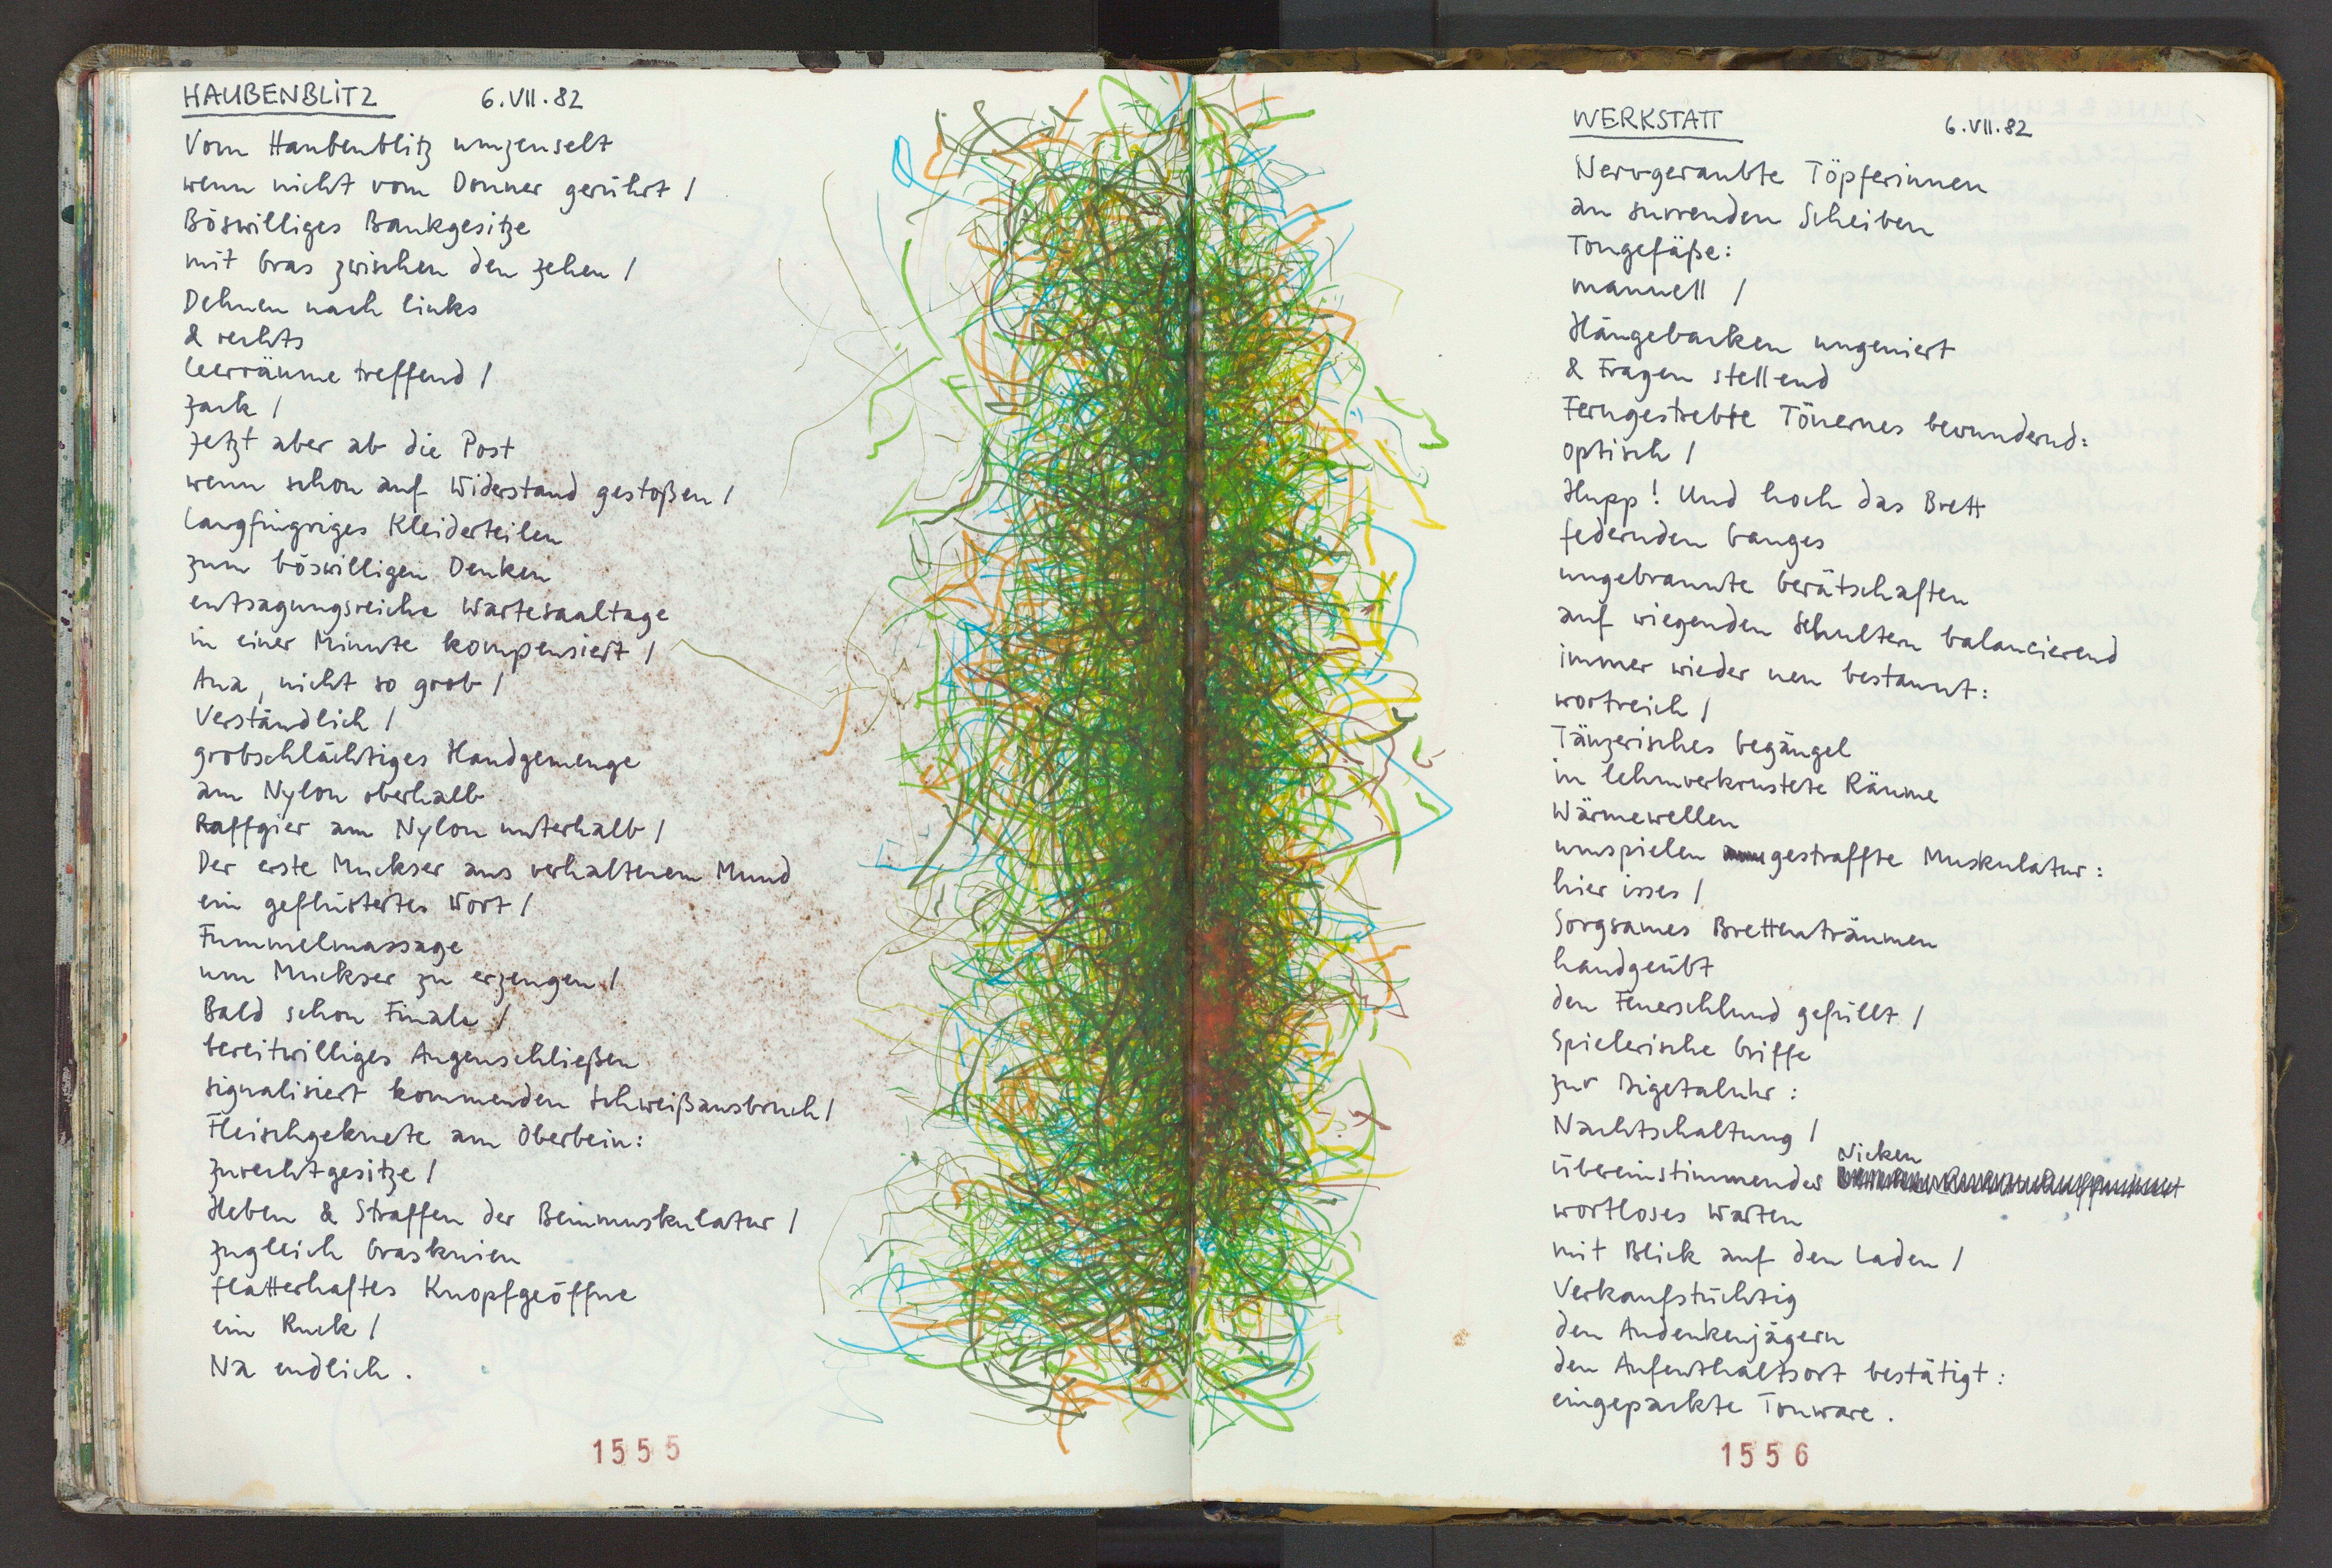 HAUBENBLITZ 6.VII.82
Vom Haubenblitz umzenselt
wenn nicht vom Donner gerührt /
Böswilliges Bankgesitze
mit Gras zwischen den Zehen /
Dehnen nach links
& rechts
Leerräume treffend /
Zack /
Jetzt aber ab die Post
wenn schon auf Widerstand gestoßen /
Langfingriges Kleiderteilen
zum böswilligen Denken
entsagungsreiche Wartesaaltage
in einer Minute kompensiert /
Aua, nicht so grob /
Verständlich /
grobschlächtiges Handgemenge
am Nylon oberhalb
Raffgier am Nylon unterhalb /
Der erste Muckser aus verhaltenem Mund
ein geflüstertes Wort /
Fummelmassage
um Muckser zu erzeugen /
Bald schon Finale /
bereitwilliges Augenschließen
signalisiert kommenden Schweißausbruch /
Fleischgeknete am Oberbein:
Zurechtgesitze /
Heben & Straffen der Beinmuskulatur /
zugleich Grasknien
flatterhaftes Knopfgeöffne
ein Ruck /
Na endlich.
1555
WERKSTATT 6.VII.82
Nervgeraubte Töpferinnen
an surrenden Scheiben
Tongefäße:
manuell /
Hängebacken ungeniert
& Fragen stellend
Ferngestrebte Tönernes bewundernd:
optisch /
Hupp! Und hoch das Brett
federnden Ganges
ungebrannte Gerätschaften
auf wiegenden Schultern balancierend
immer wieder neu bestaunt:
wortreich /
Tänzerisches Begängel
in lehmverkrustete Räume
Wärmewellen
umspielen gestraffte Muskulatur:
hier isses /
Sorgsames Bretterträumen
handgeübt
den Feuerschlund gefüllt /
Spielerische Griffe
zur Digetaluhr:
Nachtschaltung /
Nicken
übereinstimmendes
wortloses Warten
mit Blick auf den Laden /
Verkaufstüchtig
den Andenkenjägern
den Aufenthaltsort bestätigt:
eingepackte Tonware.
1556